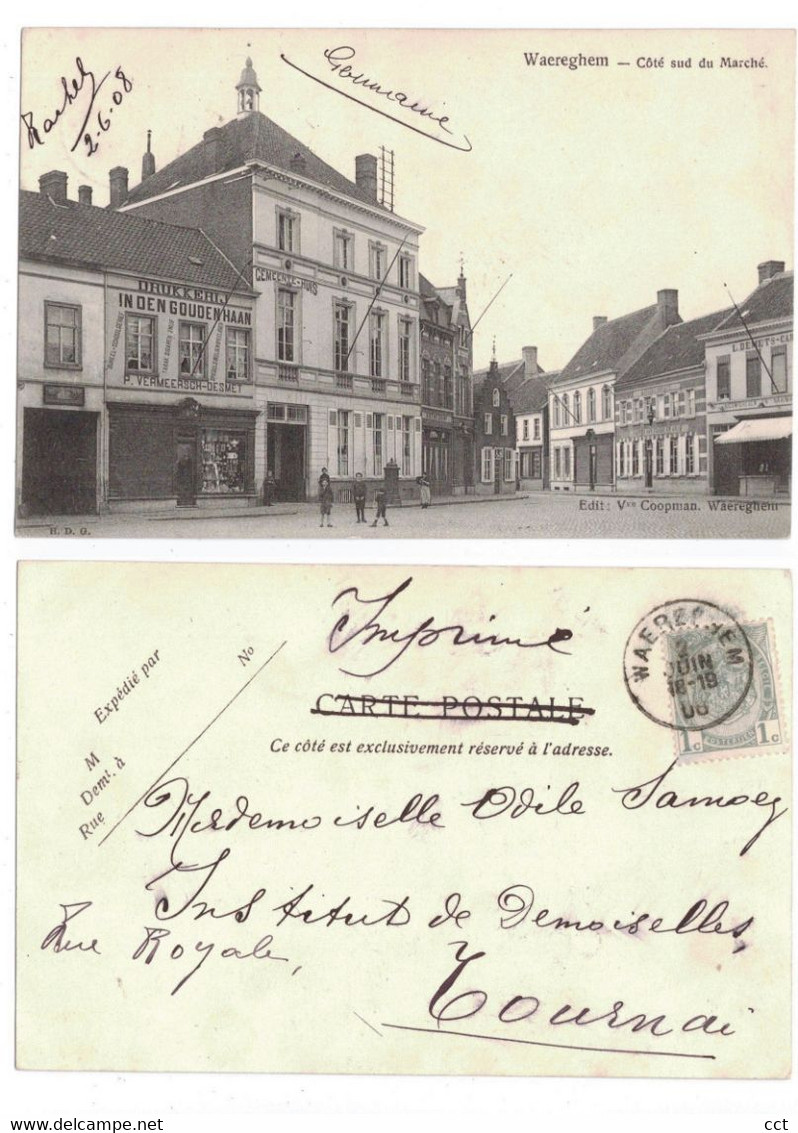 Waereghem — Côté sud du Marché.
Rachel
2-6-08
Germaine
DRUKKERIJ
IN DEN GOUDEN HAAN
P. VERMEERSCH-DESMET
GEMEENTE-HUIS
Edit: Vve Coopman. Waereghem
H. D. G.
Imprimé
CARTE POSTALE
Ce côté est exclusivement réservé à l'adresse.
Expédié par
M
Demt. à
Rue
No
WAEREGHEM
2
JUIN
18-19
08
1c 1c
Mademoiselle Odile Samoey
Institut de Demoiselles,
Rue Royale,
Tournai
cct